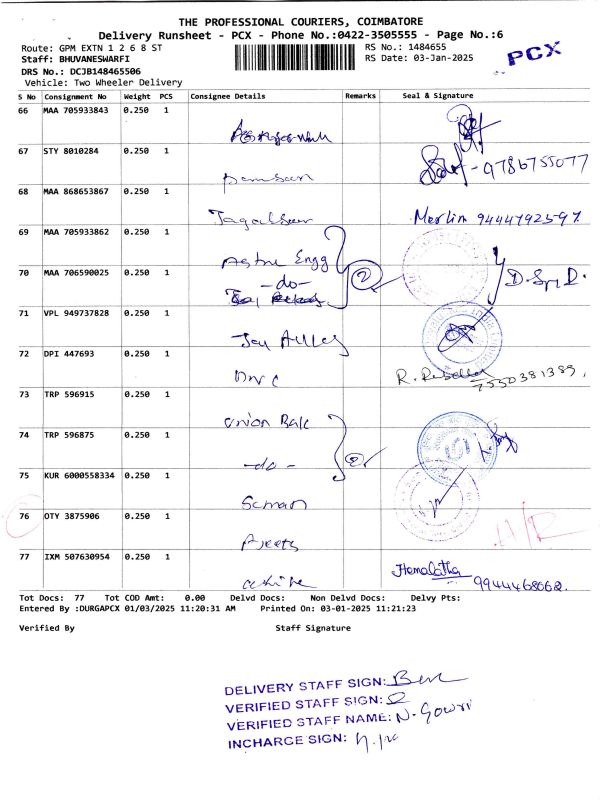 THE PROFESSIONAL COURIERS, COIMBATORE
Delivery Runsheet - PCX - Phone No.:0422-3505555 - Page No.:6
Route: GPM EXTN 1 2 6 8 ST
RS No.: 1484655
Staff: BHUVANESWARFI
RS Date: 03-Jan-2025
PCX
DRS No.: DCJB148465506
Vehicle: Two Wheeler Delivery
S No Consignment No Weight PCS Consignee Details Remarks Seal & Signature
66 MAA 705933843 0.250 1
67 STY 8010284 0.250 1
9786755077
68 MAA 868653867 0.250 1
Merlin 9444792597
69 MAA 705933862 0.250 1
Astra Engg
70 MAA 706590025 0.250 1
-do-
2
71 VPL 949737828 0.250 1
72 DPI 447693 0.250 1
R. Rebella
7550381389
73 TRP 596915 0.250 1
Union Bak
74 TRP 596875 0.250 1
-do-
2
75 KUR 6000558334 0.250 1
76 OTY 3875906 0.250 1
Preeta
77 IXM 507630954 0.250 1
Hemalatha
9944468062
Tot Docs: 77 Tot COD Amt: 0.00 Delvd Docs: Non Delvd Docs: Delvy Pts:
Entered By :DURGAPCX 01/03/2025 11:20:31 AM Printed On: 03-01-2025 11:21:23
Verified By Staff Signature
DELIVERY STAFF SIGN:
VERIFIED STAFF SIGN:
VERIFIED STAFF NAME: N. Gowri
INCHARGE SIGN: